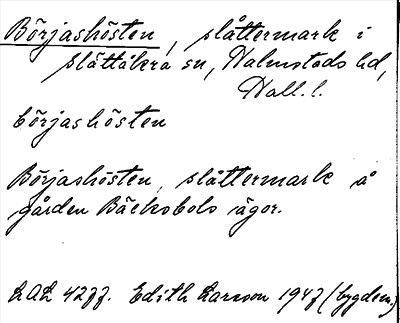 Börjashösten, slåttermark i
Slättåkra sn, Halmstads hd,
Hall. l.
börjashösten
Börjashösten, slåttermark å
gården Bäcksbols ägor.
LAL 4277. Edith Larsson 1947 (bygdem.)